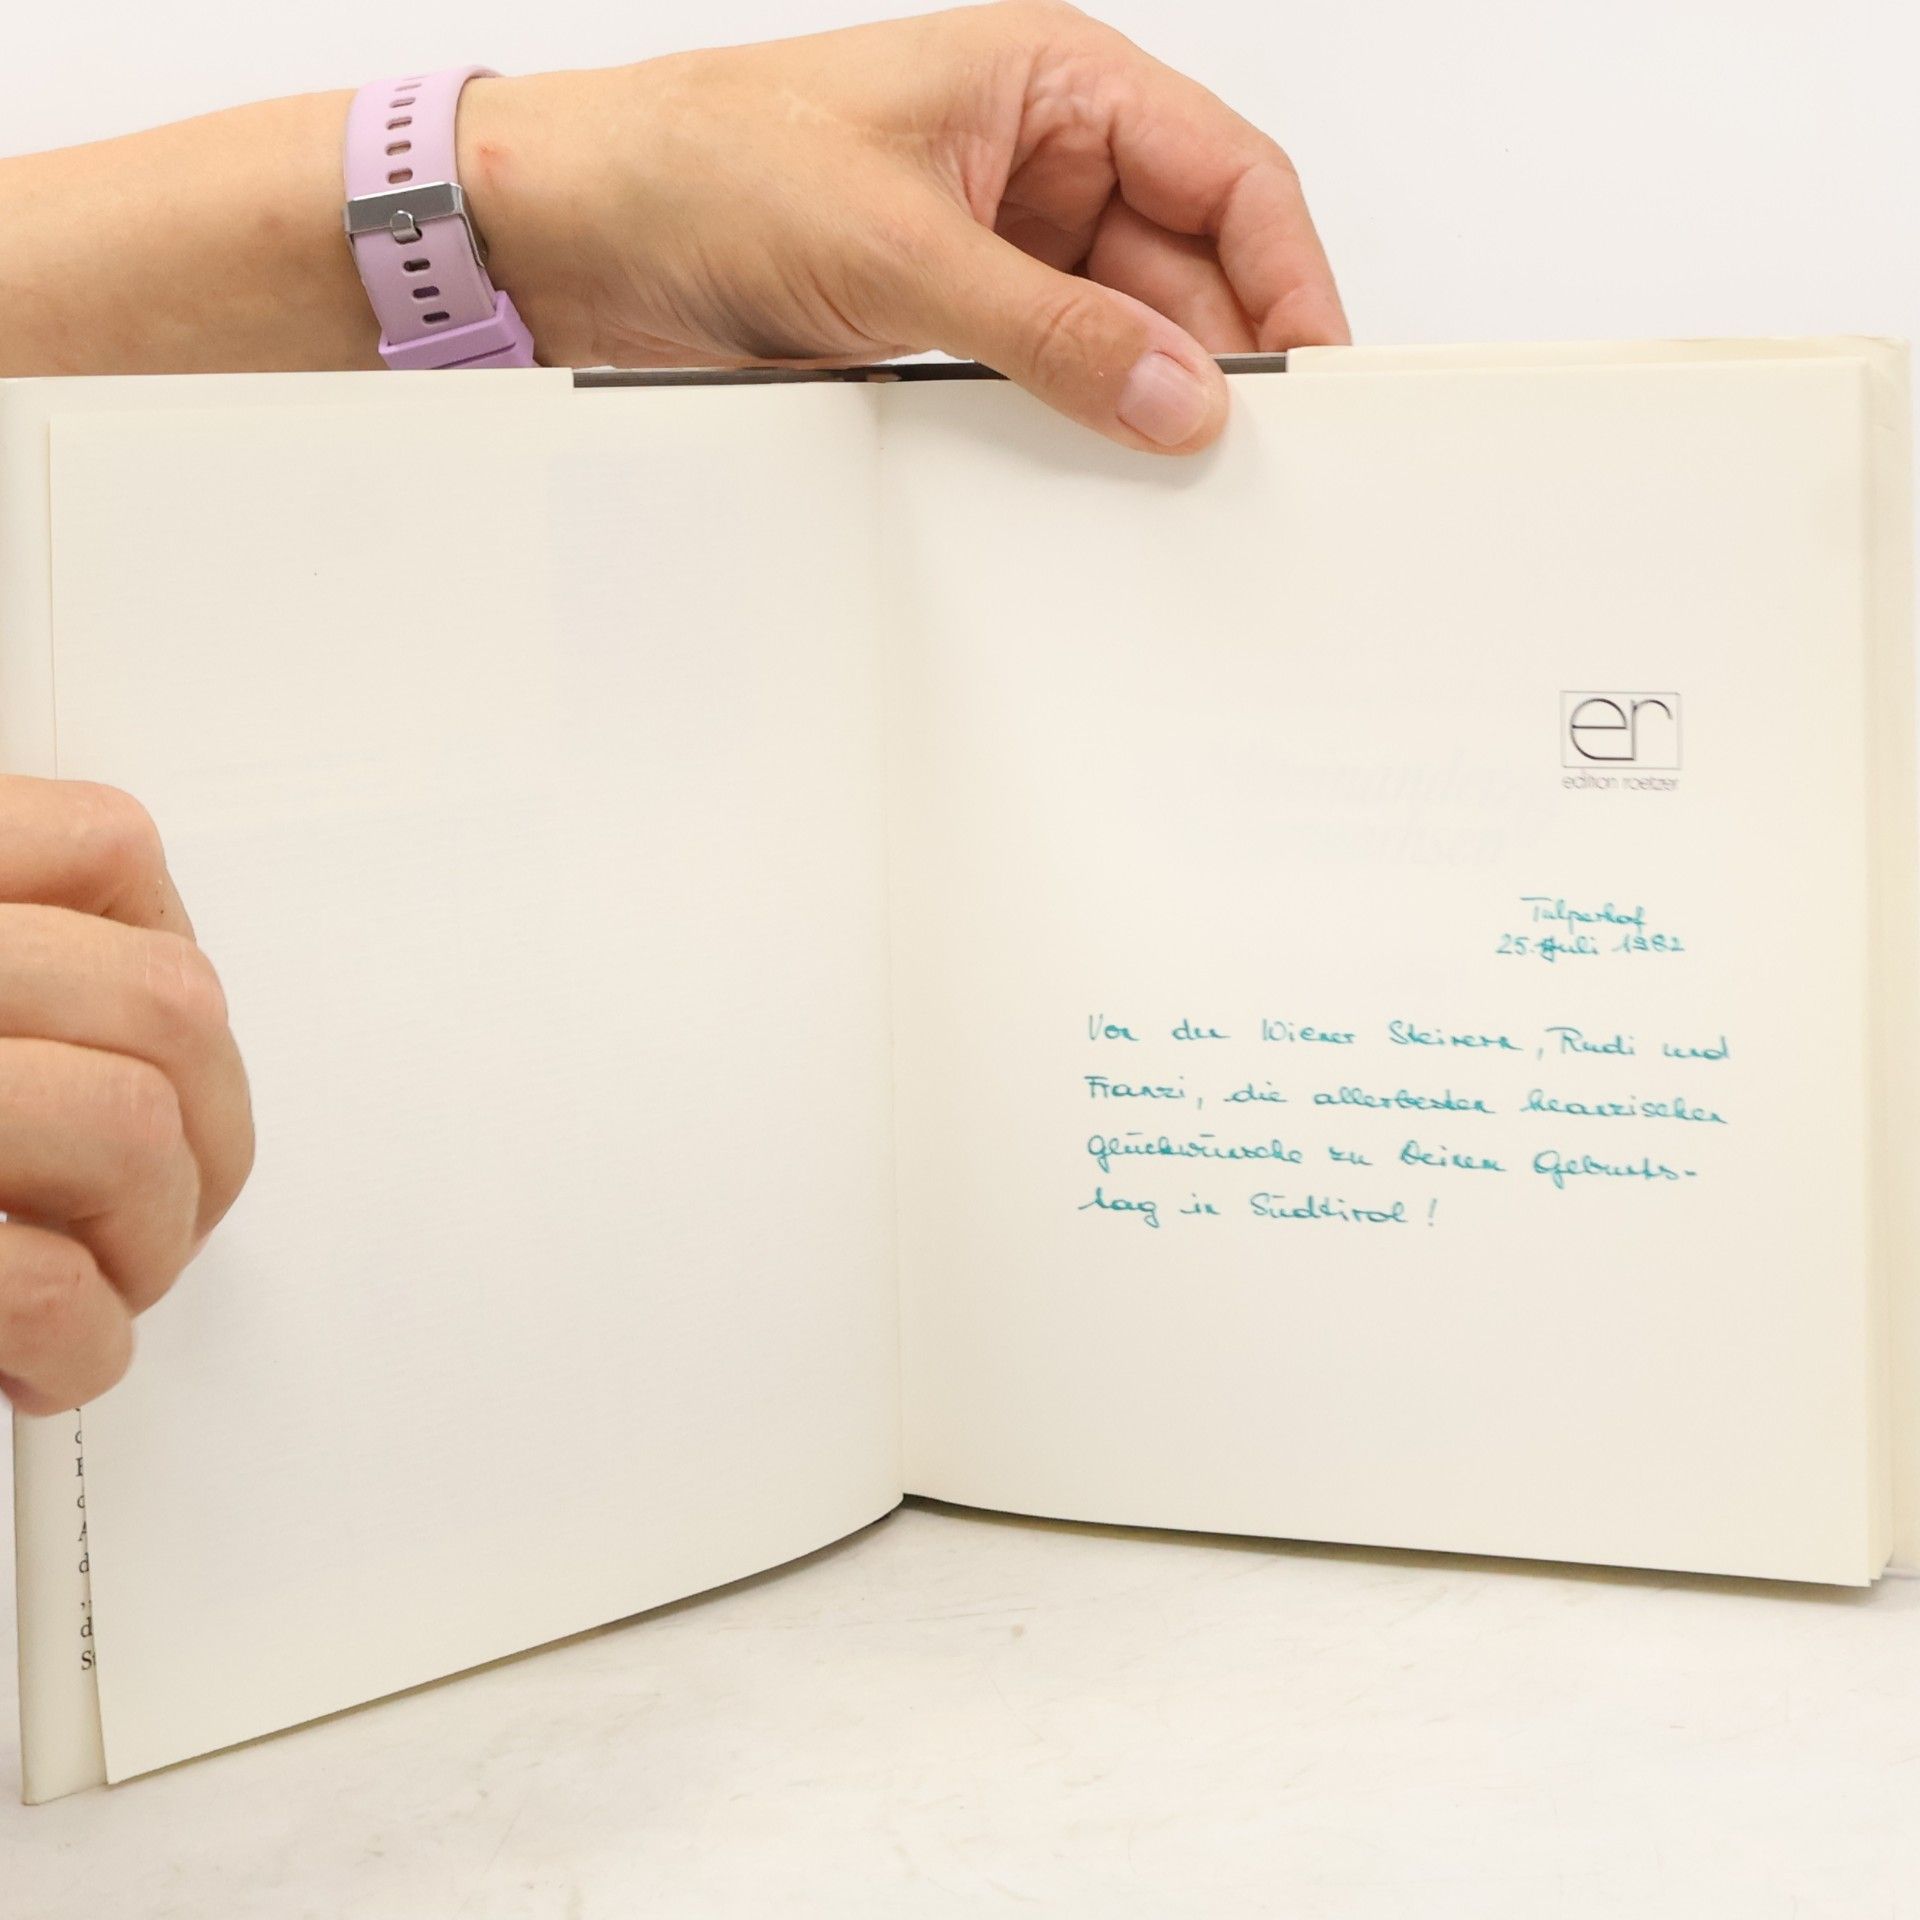 er
edition roetzer
Tulperhof
25. Juli 1982
Von den Wiener Steirern, Rudi und
Franzi, die allerbesten heanzischen
Glückwünsche zu Deinem Geburts-
tag in Südtirol!
d
St